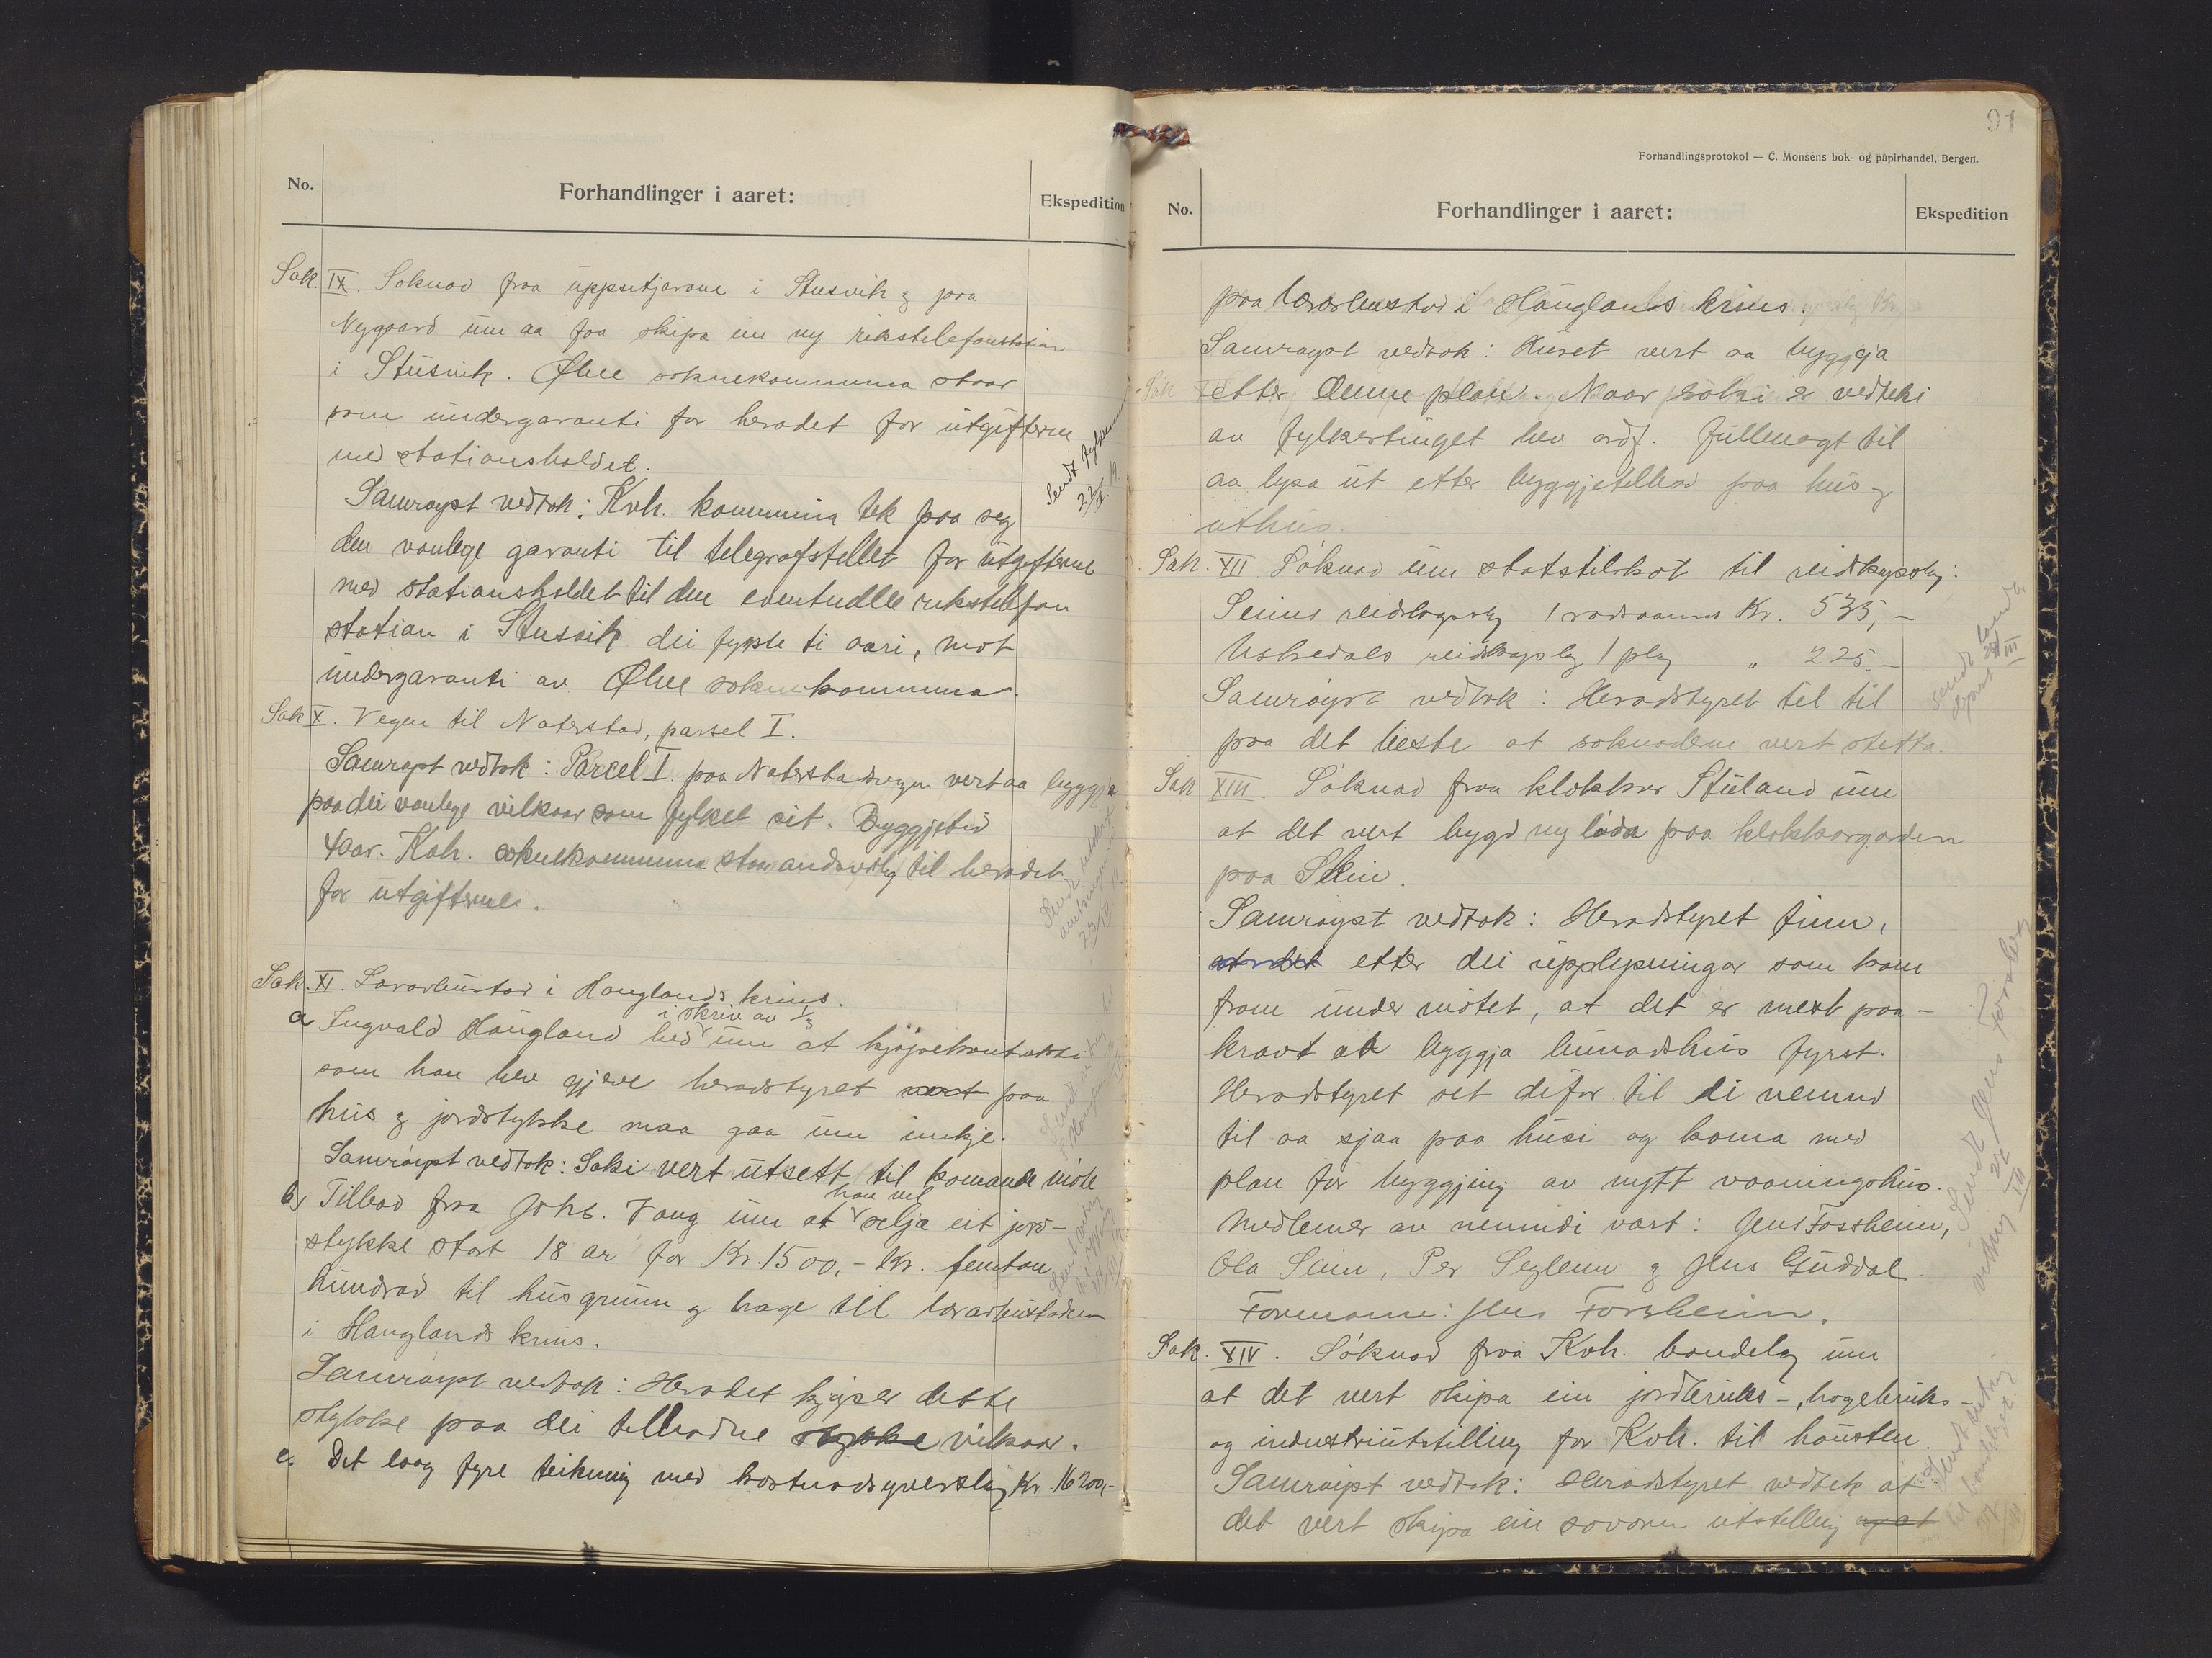 No.
Forhandlinger i aaret:
Ekspedition
Sak. IX. Soknad fraa uppsitjarane i Stusvik og paa
Nygaard um aa faa skipa ein ny rikstelefonstation
i Stusvik. Ølve soknekommuna staar
som undergaranti for heradet for utgifterne
med stationsholdet.
Sendt fylkesmannen
22/III 19
Samrøyst vedtok: Kvh. kommuna tek paa seg
den vanlege garanti til telegrafstellet for utgifterne
med stationsholdet til den eventuelle rikstelefon
station i Stusvik dei fyrste ti aari, mot
undergaranti av Ølve soknekommuna.
Sak X. Vegen til Naterstad, parsel I.
Samrøyst vedtok: Parcel I. paa Naterstadvegen vert aa byggja
paa dei vanlege vilkaar som fylket sit. Byggjetid
4 aar. Kvh. soknekommuna staar andsvarleg til heradet
for utgifterne.
Sak. XI. Lærarbustad i Hauglands krins.
a Ingvald Haugland bed i skriv av 1/3 um at kjøpekontrakti
som han hev gjeve heradstyret vart paa
hus og jordstykke maa gaa um inkje.
Samrøyst vedtok: Saki vert utsett til komande møte
b, Tilbod fraa Johs. Vaug um at han vil selja eit jord-
stykke stort 18 ar for Kr. 1500,- Kr. femtan
hundrad til husgrunn og hage til lærarbustaden
i Hauglands krins.
Samrøyst vedtok: Heradet kjøper dette
stykke paa dei tilbodne stykke vilkaar.
c. Det laag fyre teikning med kostnadsyverslag Kr. 16200,-
91
Forhandlingsprotokol — C. Monsens bok- og papirhandel, Bergen.
No.
Forhandlinger i aaret:
Ekspedition
paa lærarbustad i Hauglands krins.
Samrøyst vedtok: Huset vert aa byggja
etter denne plan. Naar saki er vedteki
av fylkestinget hev ordf. fullmagt til
aa lysa ut etter byggjetilbod paa hus og
uthus.
Sak. XII Søknad um statstilskot til reidkapslag:
Seims reidskapslag 1 radsaamar Kr. 535,-
Uskedals reidskapslag 1 plog " 225.-
Samrøyst vedtok: Heradstyret tel til
paa det beste at soknadene vert stetta.
Sak XIII. Søknad fraa klokkar Stuland um
at det vert bygd ny løda paa klokkargarden
paa Skin.
Samrøyst vedtok: Heradstyret finn,
at det etter dei upplysningar som kom
fram under møtet, at det er mest paa-
kravt at byggja bunadshus fyrst.
Heradstyret set difor til ei nemnd
til aa sjaa paa husi og koma med
plan for byggjing av nytt vaaningshus.
Medlemer av nemndi vart: Jens Fossheim,
Ola Seim, Per Seglem og Jens Guddal.
Formann: Jens Forsheim.
Sak. XIV. Søknad fraa Kvh. bondelag um
at det vert skipa ein jordbruks-, hagebruks-
og industriutstilling for Kvh. til hausten.
Samrøyst vedtok: Heradstyret vedtek at
det vert skipa ein sovoren utstelling og at